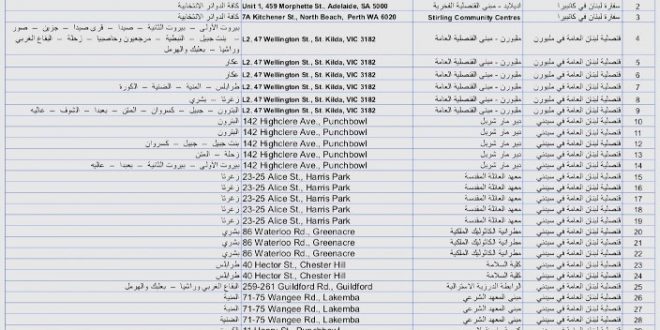 2 سفارة لبنان في كانبيرا اديلايد - مبنى القنصلية الفخرية Unit 1, 459 Morphette St., Adelaide, SA 5000 كافة الدوائر الانتخابية
3 سفارة لبنان في كانبيرا Stirling Community Centres 7A Kitchener St., North Beach, Perth WA 6020 كافة الدوائر الانتخابية
بيروت الأولى – بيروت الثانية – صيدا – قرى صيدا – جزين – صور
4 قنصلية لبنان العامة في ملبورن ملبورن - مبنى القنصلية العامة L2, 47 Wellington St., St. Kilda, VIC 3182 – بنت جبيل – النبطية – مرجعيون وحاصبيا – زحلة – البقاع الغربي
وراشيا – بعلبك والهرمل
5 قنصلية لبنان العامة في ملبورن ملبورن - مبنى القنصلية العامة L2, 47 Wellington St., St. Kilda, VIC 3182 عكار
6 قنصلية لبنان العامة في ملبورن ملبورن - مبنى القنصلية العامة L2, 47 Wellington St., St. Kilda, VIC 3182 عكار
7 قنصلية لبنان العامة في ملبورن ملبورن - مبنى القنصلية العامة L2, 47 Wellington St., St. Kilda, VIC 3182 طرابلس – المنية – الضنية – الكورة
8 قنصلية لبنان العامة في ملبورن ملبورن - مبنى القنصلية العامة L2, 47 Wellington St., St. Kilda, VIC 3182 زغرتا – بشري
9 قنصلية لبنان العامة في ملبورن ملبورن - مبنى القنصلية العامة L2, 47 Wellington St., St. Kilda, VIC 3182 البترون – جبيل – كسروان – المتن – بعبدا – الشوف – عاليه
10 قنصلية لبنان العامة في سيدني دير مار شربل 142 Highclere Ave., Punchbowl البترون
11 قنصلية لبنان العامة في سيدني دير مار شربل 142 Highclere Ave., Punchbowl البترون
12 قنصلية لبنان العامة في سيدني دير مار شربل 142 Highclere Ave., Punchbowl جبيل – كسروان
13 قنصلية لبنان العامة في سيدني دير مار شربل 142 Highclere Ave., Punchbowl زحلة – المتن
14 قنصلية لبنان العامة في سيدني دير مار شربل 142 Highclere Ave., Punchbowl بيروت الأولى – بيروت الثانية – بعبدا – عاليه
15 قنصلية لبنان العامة في سيدني معهد العائلة المقدسة 23-25 Alice St., Harris Park زغرتا
16 قنصلية لبنان العامة في سيدني معهد العائلة المقدسة 23-25 Alice St., Harris Park زغرتا
17 قنصلية لبنان العامة في سيدني معهد العائلة المقدسة 23-25 Alice St., Harris Park زغرتا
18 قنصلية لبنان العامة في سيدني معهد العائلة المقدسة 23-25 Alice St., Harris Park زغرتا
19 قنصلية لبنان العامة في سيدني معهد العائلة المقدسة 23-25 Alice St., Harris Park زغرتا
20 قنصلية لبنان العامة في سيدني مطرانية الكاثوليك الملكية 86 Waterloo Rd., Greenacre بشري
21 قنصلية لبنان العامة في سيدني مطرانية الكاثوليك الملكية 86 Waterloo Rd., Greenacre بشري
22 قنصلية لبنان العامة في سيدني مطرانية الكاثوليك الملكية 86 Waterloo Rd., Greenacre بشري
23 قنصلية لبنان العامة في سيدني كلية السلامة 40 Hector St., Chester Hill طرابلس
24 قنصلية لبنان العامة في سيدني كلية السلامة 40 Hector St., Chester Hill طرابلس
25 قنصلية لبنان العامة في سيدني الرابطة الدرزية الاسترالية 259-261 Guildford Rd., Guildford البقاع الغربي وراشيا – بعلبك والهرمل
26 قنصلية لبنان العامة في سيدني مبنى المعهد الشرعي 71-75 Wangee Rd., Lakemba المنية
27 قنصلية لبنان العامة في سيدني مبنى المعهد الشرعي 71-75 Wangee Rd., Lakemba المنية
28 قنصلية لبنان العامة في سيدني مبنى المعهد الشرعي 71-75 Wangee Rd., Lakemba الضنية